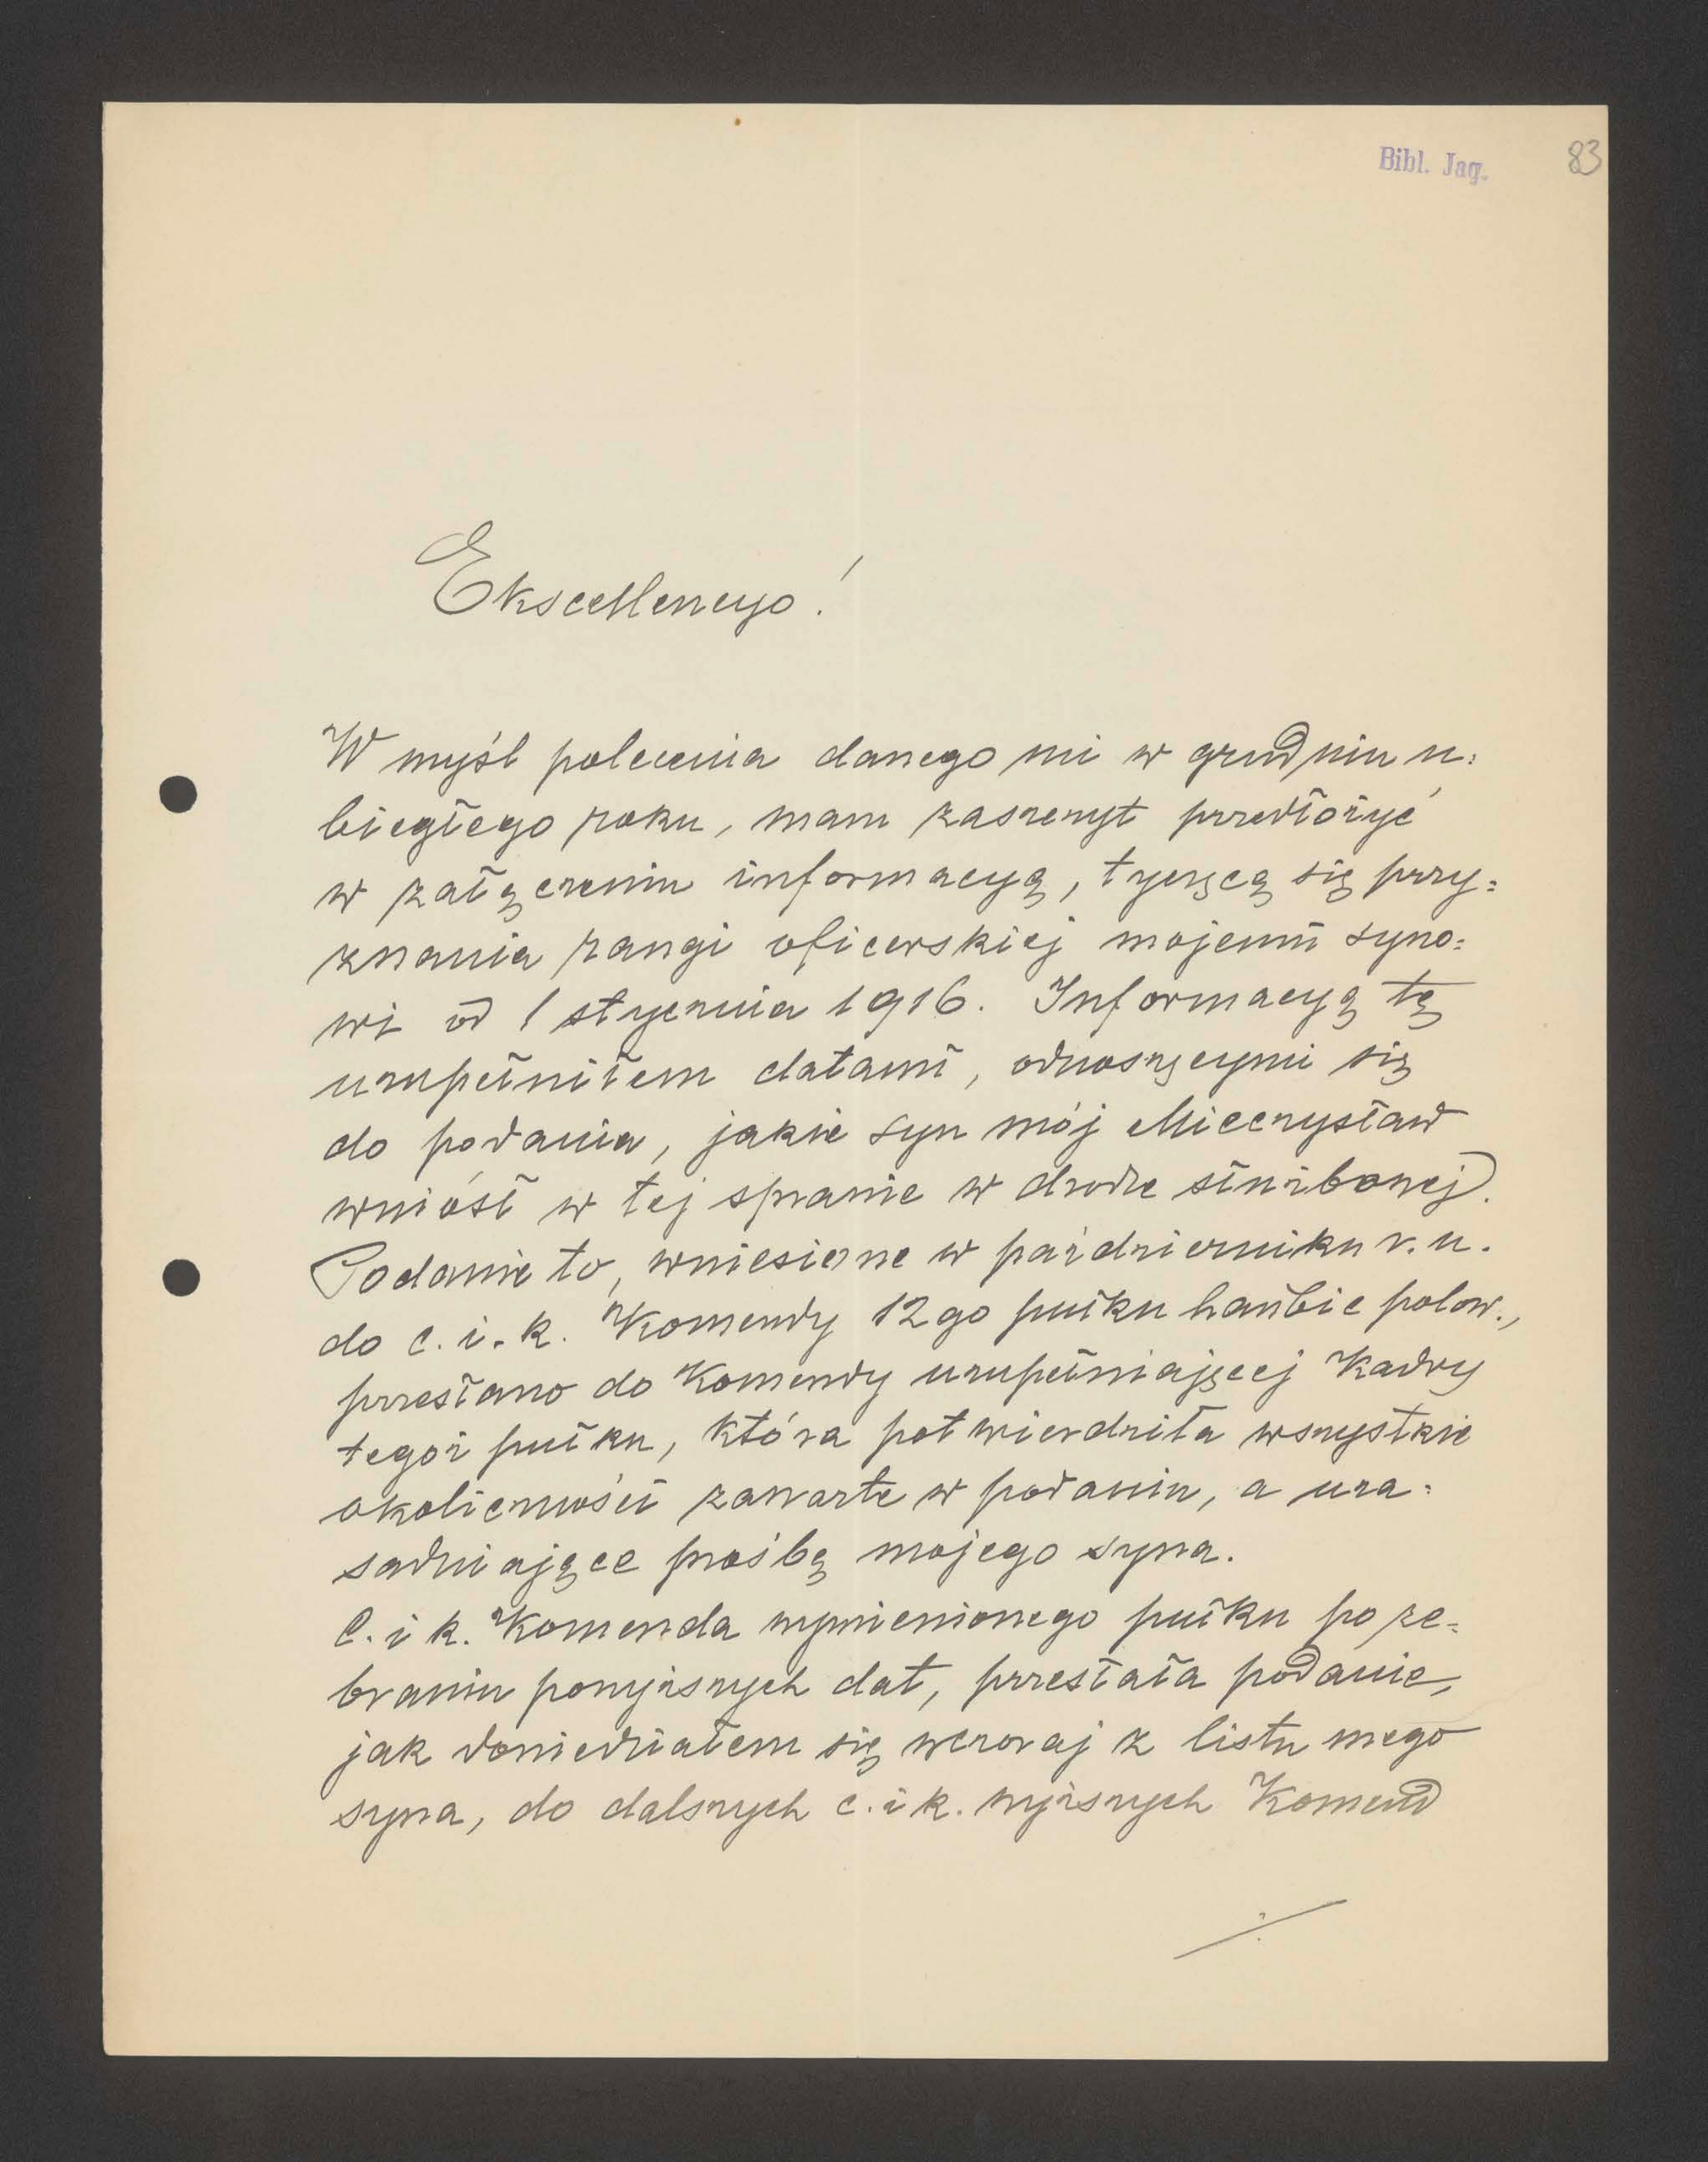 Bibl. Jag.
83
Ekscellencyo!
W myśl polecenia danego mi w grudniu u=
biegłego roku, mam zaszczyt przedłożyć
w załączeniu informacyą, tyczącą się przy=
znania rangi oficerskiej mojemu syno=
wi od 1 stycznia 1916. Informacyą tę
uzupełniłem datami, odnoszącymi się
do podania, jakie syn mój Mieczysław
wniósł w tej sprawie w drodze służbowej.
Podanie to, wniesione w październiku r. u.
do c. i. k. Komendy 12go pułku haubic polow.,
przesłano do Komendy uzupełniającej Kadry
tegoż pułku, która potwierdziła wszystkie
okoliczności zawarte w podaniu, a uza=
sadniające prośbę mojego syna.
C. i k. Komenda wymienionego pułku po ze=
braniu powyższych dat, przesłała podanie,
jak dowiedziałem się wczoraj z listu mego
syna, do dalszych c. i k. wyższych Komend
./.